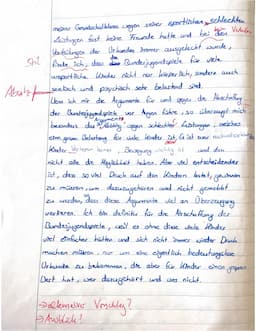 meiner Grundschulklasse wegen seiner sportlichen schlechten
Leistungen fast keine Freunde hatte und bei den
Verteilungen der Urkunden immer ausgelacht wurde,
Stil
finde ich, dass die Bundesjugendspiele für viele
unsportliche Kinder nicht nur körperlich, sondern auch
Absatz
seelisch und psychisch sehr belastend sind.
Wenn ich mir die Argumente für und gegen die Abschaffung
der Bundesjugendspiele vor Augen führe, so überzeugt mich
besonders das Argument wegen schlechter Leistungen, welches
eine grosse Belastung für viele Kinder ist.
Kinder Bewegung wichtig ist und den
nicht alle die Möglichkeit haben. Aber viel entscheidender
ist, dass so viel Druck auf den Kindern lastet, gewinnen
zu müssen, um dazuzugehören und nicht gemobbt
zu werden, dass diese Argumente viel an Überzeugung
verlieren. Ich bin definitiv für die Abschaffung der
Bundesjugendspiele, weil es ohne diese viele Kinder
viel einfacher hätten und sich nicht immer wieder Druck
machen müssen, nur um eine eigentlich bedeutungslose
Urkunde zu bekommen, die aber für Kinder einen grossen
Wert hat, wer dazugehört und wer nicht.
→ alternativer Vorschlag?
→ Ausblick!